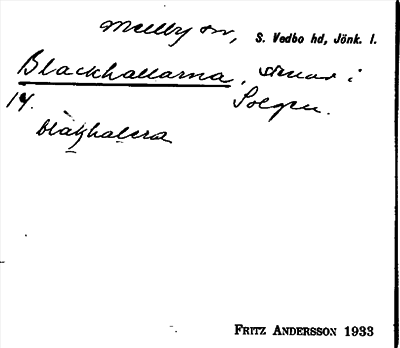 Mellby sn, S. Vedbo hd, Jönk. l.
Blackhallarna, stenar i
14. Solgen.
blak̯halera
FRITZ ANDERSSON 1933